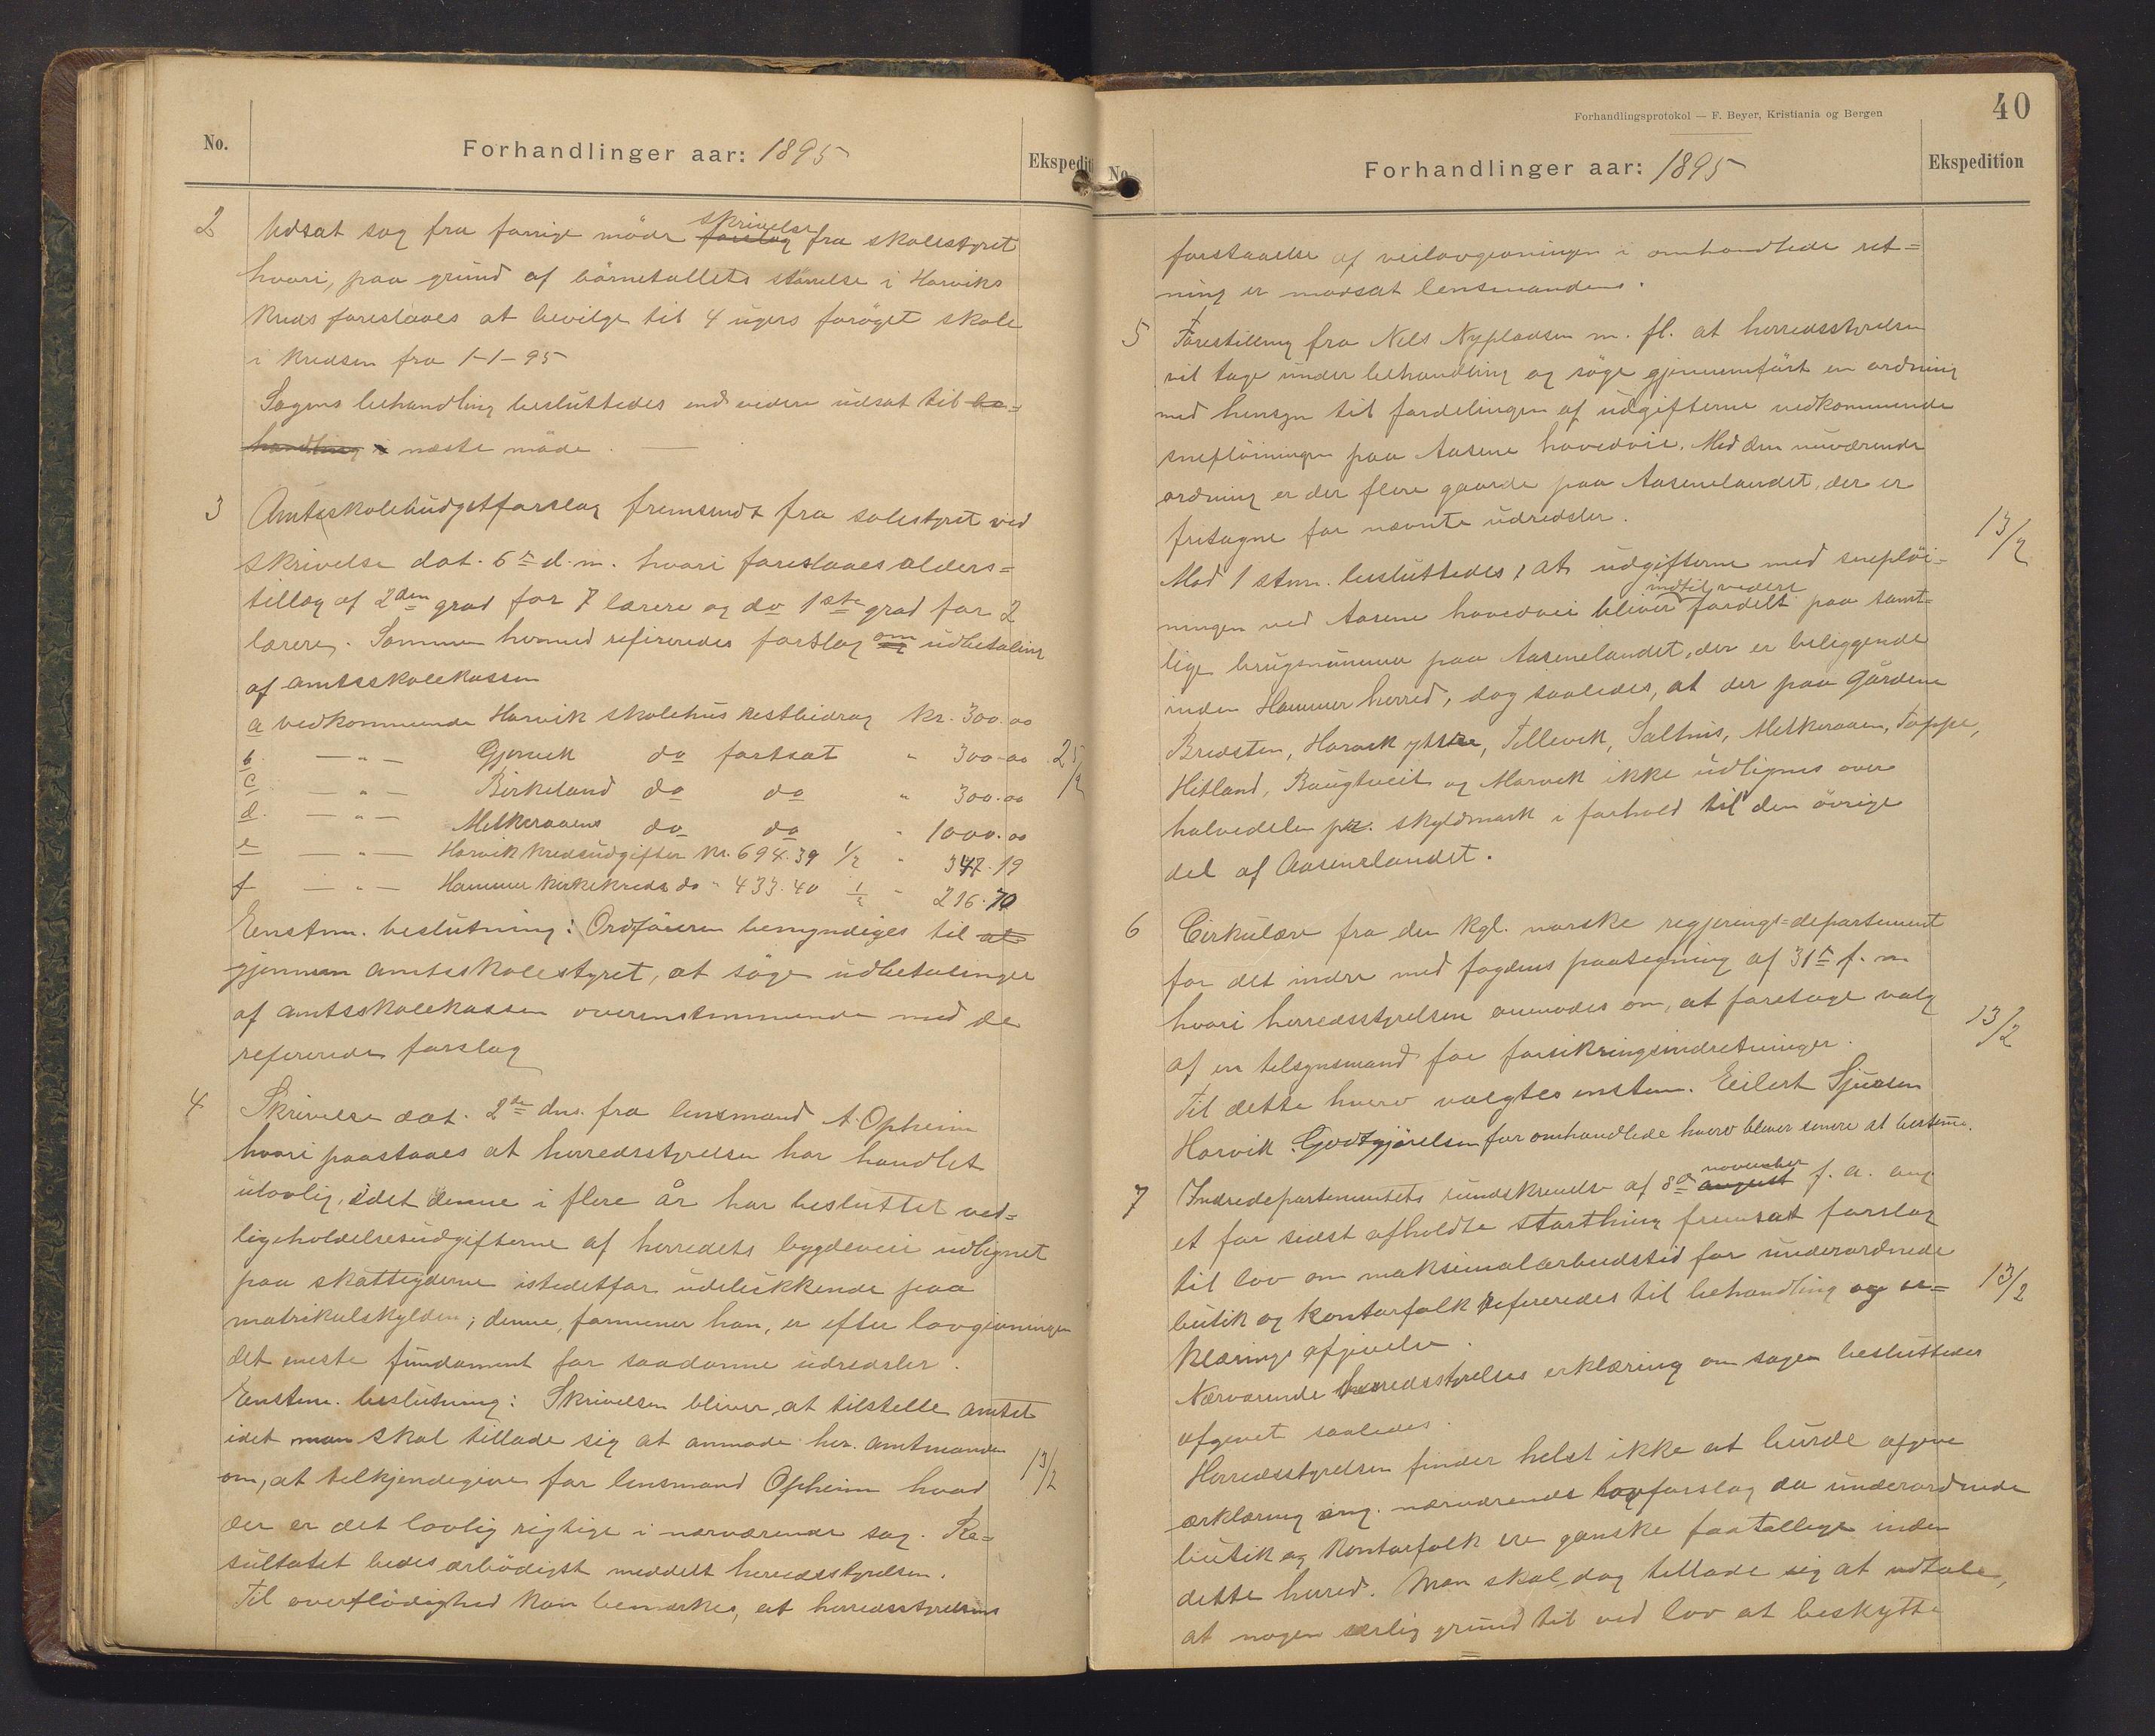 No.
Forhandlinger aar: 1895
Ekspedit
2 Udsat sag fra forrige möde forslag skrivelse fra skolestyret
hvori, paa grund af börnetallets störrelse i Horviks
kreds foreslaaes at bevilge til 4 ugers foröget skole
i kredsen fra 1-1-95
Sagens behandling besluttedes endvidere udsat til be=
handling i næste möde.
3 Amtsskolebudgetforslag fremsendt fra solestyret ved
skrivelse dat. 6te d.m. hvori foreslaaes alders=
tillæg af 2den grad for 7 lærere og do 1ste grad for 2
lærere. Sammen hermed refereredes forslag om udbetaling
af amtsskolekassen
a vedkommende Horvik skolehus restbidrag kr. 300.00
b. — " — Gjervik do fortsat " 300.00 25/2
c — " — Birkeland do do " 300.00
d. — " — Melkeraaens do do " 1000.00
e — " — Horvik kredsudgifter kr. 694.39 1/2 " 347.19
f — " — Hammer kirkekreds do " 433.40 1/2 " 216.70
Enstem. beslutning: Ordföreren bemyndiges til at
gjennem amtsskolestyret, at söge udbetalinger
af amtsskolekassen overenstemmende med de
refererede forslag
4 Skrivelse dat. 2den dns. fra lensmand A. Opheim
hvori paastaaes at herredsstyrelsen har handlet
ulovlig, idet denne i flere år har besluttet ved=
ligeholdelsesudgifterne af herredets bygdeveie udlignet
paa skatteyderne istedetfor udelukkende paa
matrikulskylden; denne, formener han, er efter lovgivningen
det eneste fundament for saadanne udredsler.
Enstem. beslutning: Skrivelsen bliver at tilstelle amtet
idet man skal tillade sig at anmode hr. amtmanden
om, at tilkjendegive for lensmand Opheim hvad 13/2
der er det lovlig rigtige i nærværende sag. Re=
sultatet bedes ærbödigst meddelt herredsstyrelsen.
Til overflödighed kan bemærkes, at herredsstyrelsens
Forhandlingsprotokol — F. Beyer, Kristiania og Bergen
40
No.
Forhandlinger aar: 1895
Ekspedition
forstaaelse af veilovgivningen i omhandlede ret=
ning er modsat lensmandens.
5 Forestilling fra Nils Nypladsen m. fl. at herredsstyrelsen
vil tage under behandling og söge gjennemfört en ordning
med hensyn til fordelingen af udgifterne vedkommende
snepløiningen paa Aasene hovedvei. Med den nuværende
ordning er der flere gaarde paa Aasenelandet, der er
fritagne for nævnte udredsler. 13/2
Mod 1 stem. besluttedes, at udgifterne med snepløi=
ningen ved Aasene hovedvei bliver indtil videre fordelt paa samt=
lige brugsnummer paa Aasenelandet, der er beliggende
inden Hammer herred, dog saaledes, at der paa gårdene
Bredsten, Horvik ytre, Tellevik, Saltnis, Melkeraaen, Toppe,
Hitland, Baugtveit og Morvik ikke udlignes over
halvedelen pr. skyldmark i forhold til den övrige
del af Aasenelandet.
6 Cirkulære fra den kgl. norske regjerings=departement
for det indre med fogdens paategning af 31te f. m
hvori herredsstyrelsen anmodes om, at foretage valg
af en tilsynsmand for forsikringsindretninger. 13/2
Til dette hverv valgtes enstem. Eilert Sjursen
Horvik. Godtgjörelsen for omhandlede hverv bliver senere at bestemme.
7 Indredepartementets rundskrivelse af 8de august november f. a. ang
et for sidst afholdte storthing fremsat forslag
til lov om maksimalarbeidstid for underordnede
butik og kontorfolk refereredes til behandling og er= 13/2
klærings afgivelse.
Nærværende herredsstyrelses erklæring om sagen besluttedes
afgivet saaledes.
Herredsstyrelsen finder helst ikke at burde afgive
erklæring ang. nærværende lovforslag da underordnede
butik og kontorfolk ere ganske faatallige inden
dette herred. Man skal dog tillade sig at udtale,
at nogen særlig grund til ved lov at beskytte